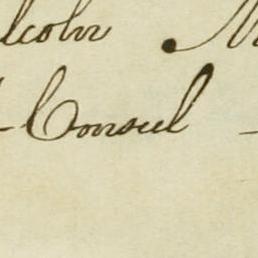 lcolm M
- Consul -